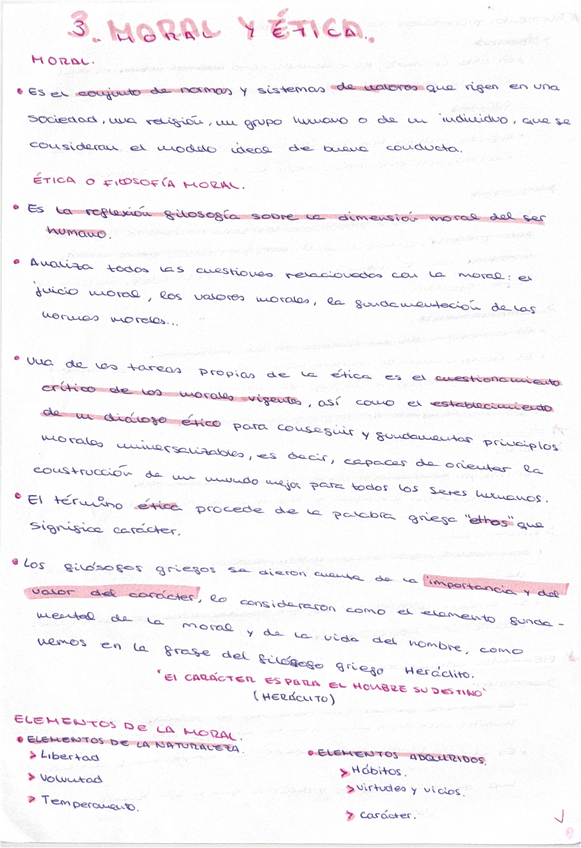 3. MORAL Y ÉTICA.
MORAL.
• Es el conjunto de normas y sistemas de valores que rigen en una
sociedad, una religión, un grupo humano o de un individuo, que se
consideran el modelo ideal de buena conducta.
ÉTICA O FILOSOFÍA MORAL.
• Es la reflexión filosofía sobre la dimensión moral del ser
humano.
• Analiza todas las cuestiones relacionadas con la moral: el
juicio moral, los valores morales, la fundamentación de las
normas morales...
• Una de las tareas propias de la ética es el cuestionamiento
crítico de los morales vigentes, así como el establecimiento
de un diálogo ético para conseguir y fundamentar principios
morales universalizables, es decir, capaces de orientar la
construcción de un mundo mejor para todos los seres humanos.
• El término ética procede de la palabra griega "ethos" que
significa carácter.
• Los filósofos griegos se dieron cuenta de la importancia y del
valor del carácter, lo consideraron como el elemento funda-
mental de la moral y de la vida del hombre, como
vemos en la frase del filósofo griego Heráclito.
"El CARÁCTER ES PARA EL HOMBRE SU DESTINO"
(HERÁCLITO)
ELEMENTOS DE LA MORAL.
• ELEMENTOS DE LA NATURALEZA.
> Libertad
> Voluntad
> Temperamento.
• ELEMENTOS ADQUIRIDOS.
> Hábitos.
> Virtudes y vicios.
> Carácter.